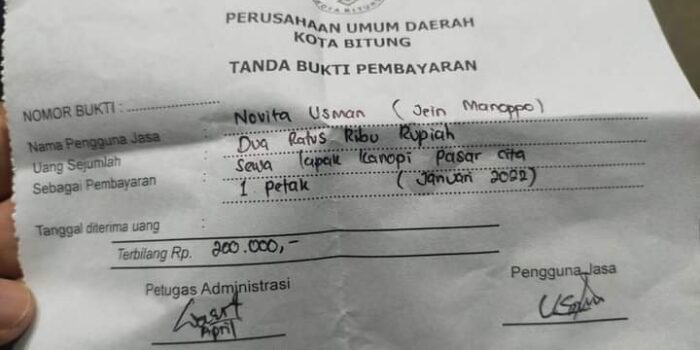 KOTA BITUNG
PERUSAHAAN UMUM DAERAH
KOTA BITUNG
TANDA BUKTI PEMBAYARAN
NOMOR BUKTI :
Nama Pengguna Jasa : Novita Usman ( Jein Manoppo)
Uang Sejumlah : Dua Ratus Ribu Rupiah
Sebagai Pembayaran : Sewa lapak Kanopi Pasar Cita
1 Petak ( Januari 2022)
Tanggal diterima uang :
Terbilang Rp. 200.000,-
Petugas Administrasi Pengguna Jasa
April